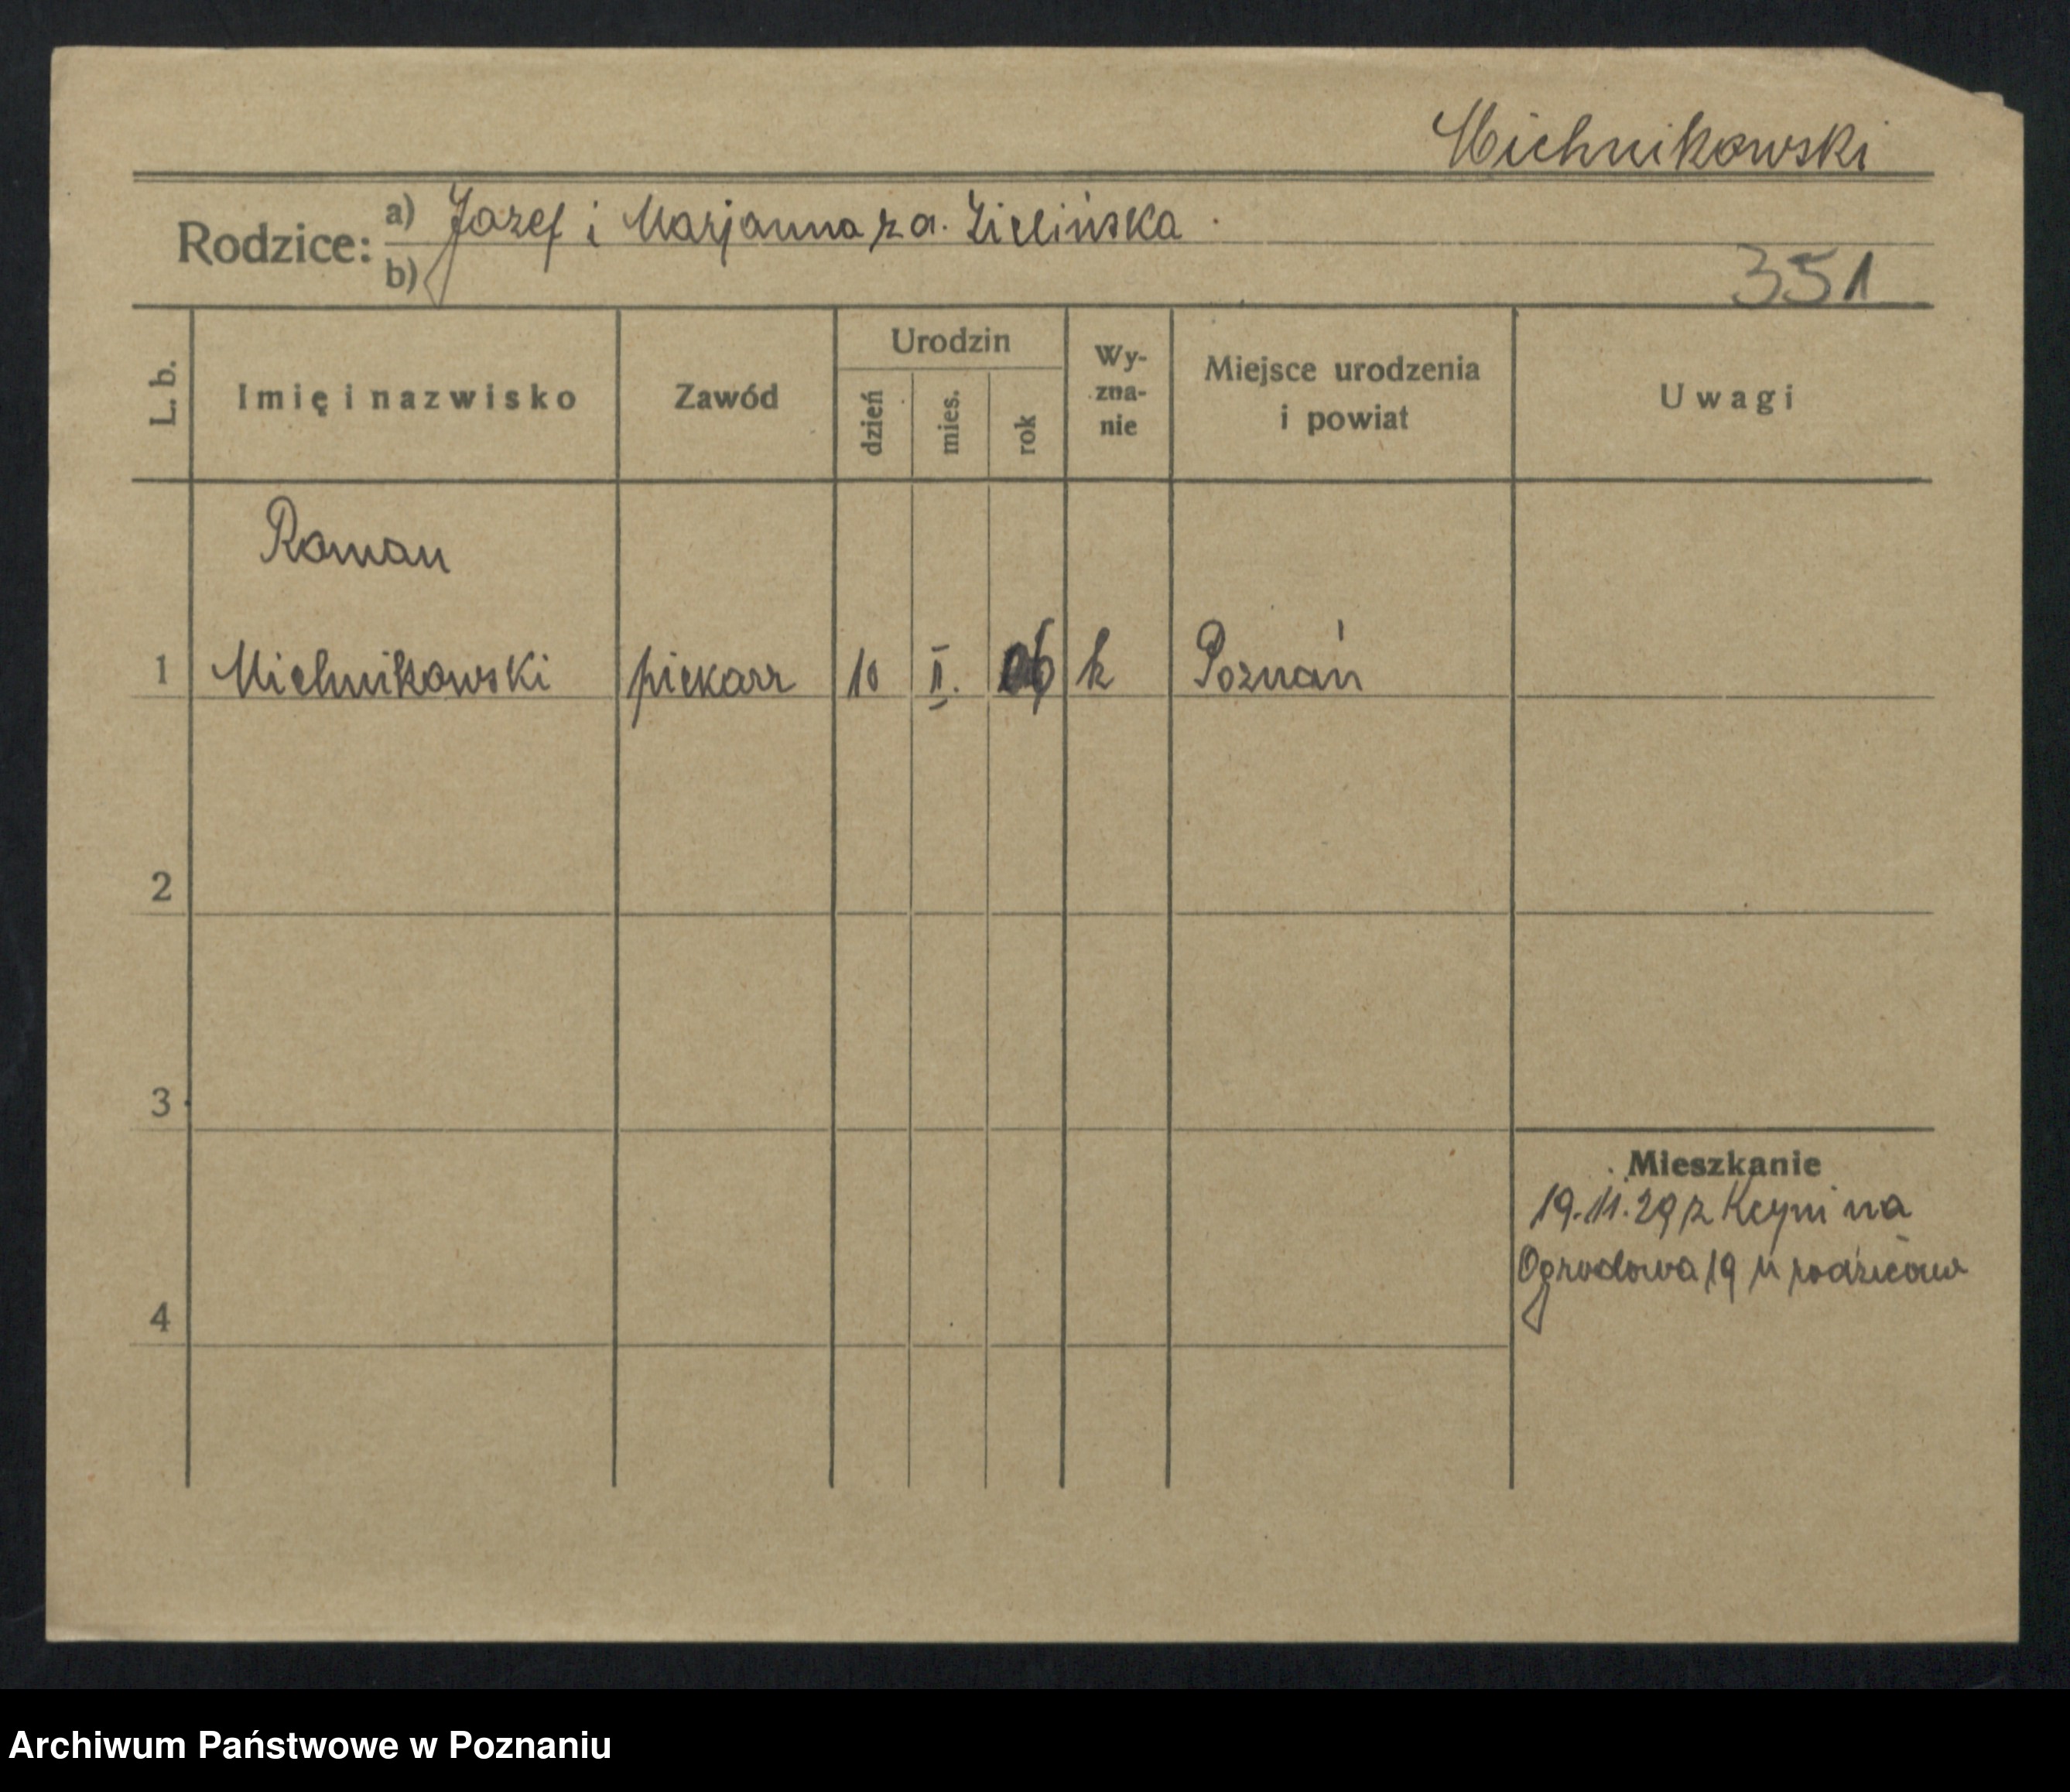 Michnikowski
Rodzice: a) Jozef i Marjanna z a. Zielińska
b)
351
L. b.
Imię i nazwisko
Zawód
Urodzin
dzień
mies.
rok
Wy-
zna-
nie
Miejsce urodzenia
i powiat
Uwagi
Roman
1 Michnikowski piekarz 10 II. 06 k Poznań
2
3
Mieszkanie
19.11.29 z Kcyni na
Ogrodowa 19 u rodziców
4
Archiwum Państwowe w Poznaniu